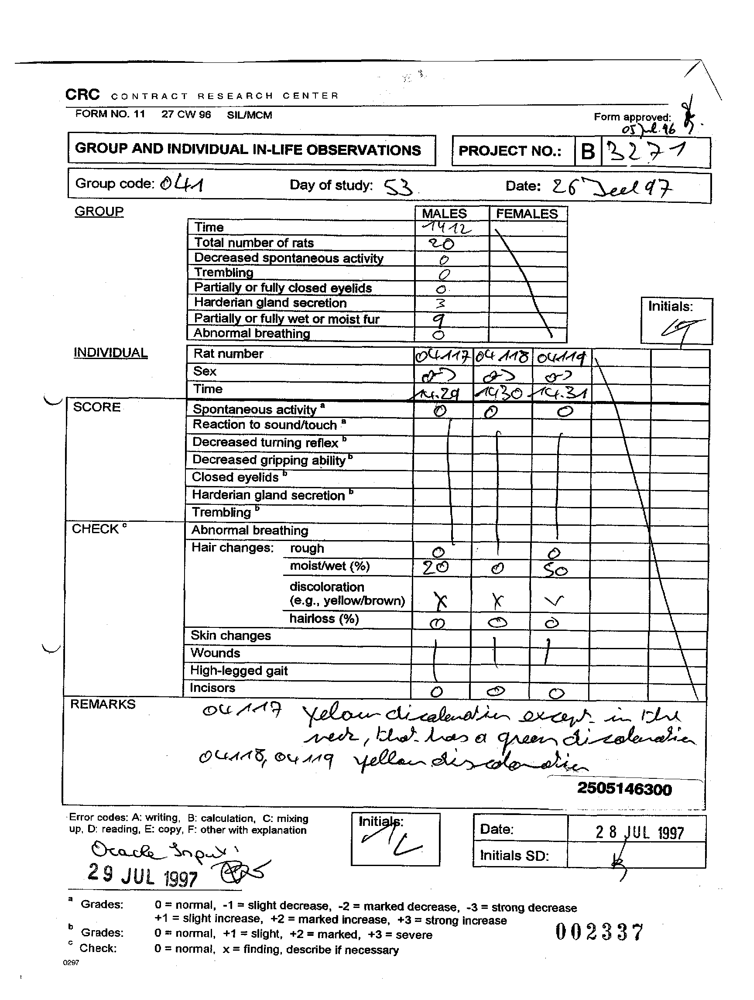 CRC CONTRACT RESEARCH CENTER
FORM NO. 11 27 CW 96 SIL/MCM
Form approved:
05 Jul. 96
GROUP AND INDIVIDUAL IN-LIFE OBSERVATIONS
PROJECT NO.: B 3271
Group code: 041 Day of study: 53 Date: 26 Juli 97
GROUP MALES FEMALES
Time 1412
Total number of rats 20
Decreased spontaneous activity 0
Trembling 0
Partially or fully closed eyelids 0
Harderian gland secretion 3
Partially or fully wet or moist fur 9
Abnormal breathing 0
Initials:
INDIVIDUAL Rat number 04117 04118 04119
Sex ♂ ♂ ♂
Time 14.29 1430 14.31
SCORE Spontaneous activity a 0 0 0
Reaction to sound/touch a
Decreased turning reflex b
Decreased gripping ability b
Closed eyelids b
Harderian gland secretion b
Trembling b
CHECK c Abnormal breathing
Hair changes: rough 0 0
moist/wet (%) 20 0 50
discoloration
(e.g., yellow/brown) X X
hairloss (%) 0 0 0
Skin changes
Wounds
High-legged gait
Incisors 0 0 0
REMARKS 04117 yelow discoloration except in the
neck, that has a green discoloration
04118, 04119 yellow discoloration
2505146300
Error codes: A: writing, B: calculation, C: mixing
up, D: reading, E: copy, F: other with explanation
Initials:
Date: 28 JUL 1997
Initials SD:
Oracle Input:
29 JUL 1997
a Grades: 0 = normal, -1 = slight decrease, -2 = marked decrease, -3 = strong decrease
+1 = slight increase, +2 = marked increase, +3 = strong increase
b Grades: 0 = normal, +1 = slight, +2 = marked, +3 = severe
c Check: 0 = normal, x = finding, describe if necessary
002337
0297